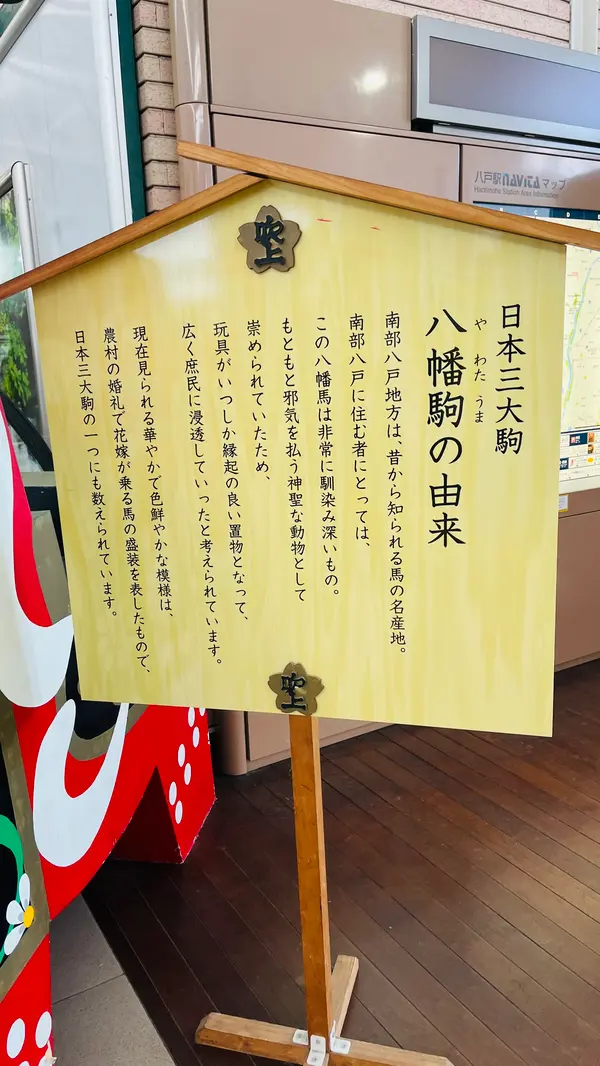 吹上
日本三大駒
やわたうま
八幡駒の由来
南部八戸地方は、昔から知られる馬の名産地。
南部八戸に住む者にとっては、
この八幡馬は非常に馴染み深いもの。
もともと邪気を払う神聖な動物として
崇められていたため、
玩具がいつしか縁起の良い置物となって、
広く庶民に浸透していったと考えられています。
現在見られる華やかで色鮮やかな模様は、
農村の婚礼で花嫁が乗る馬の盛装を表したもので、
日本三大駒の一つにも数えられています。
吹上
八戸駅navitaマップ
Hachinohe Station Area Information